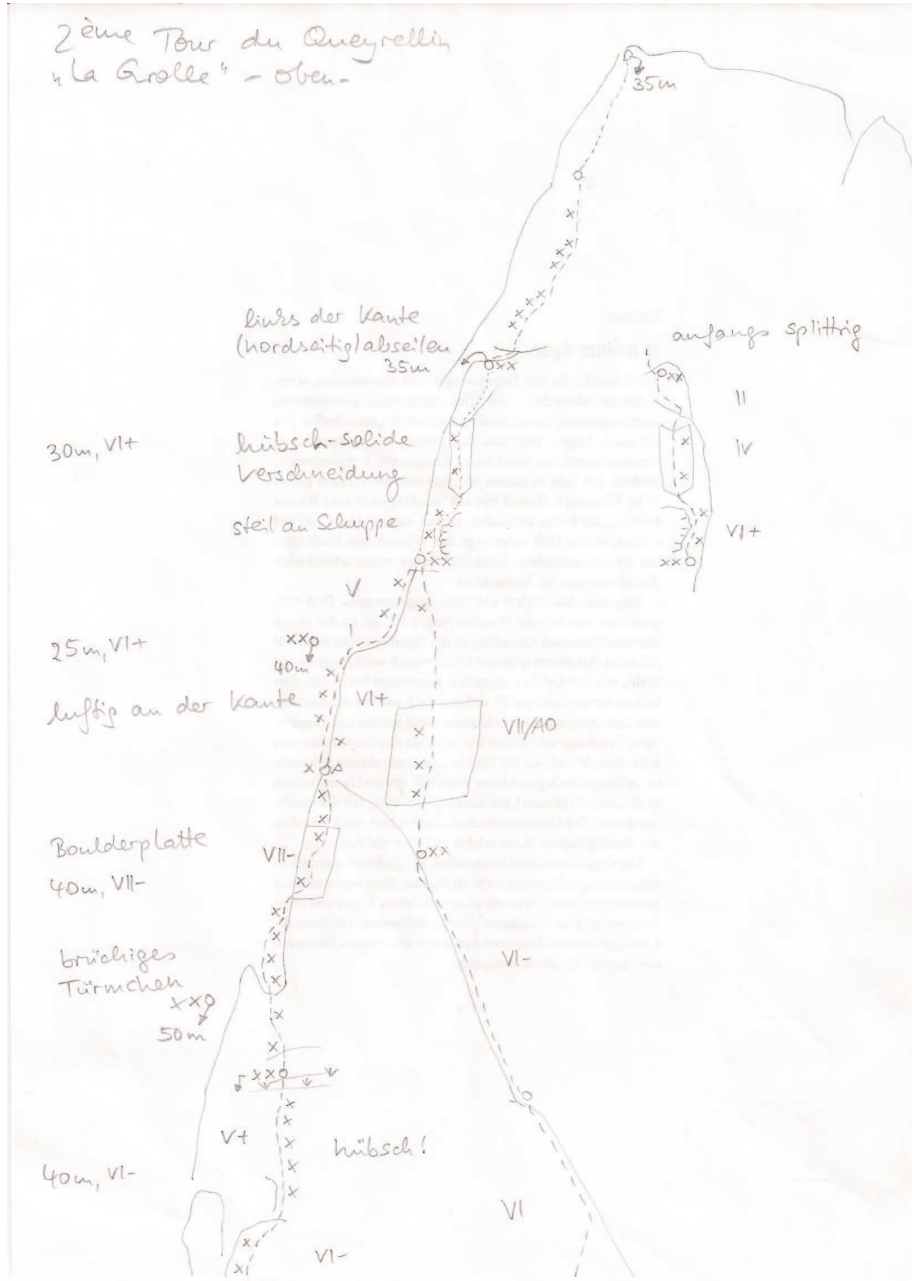 2ème Tour du Queyrellin
"La Grolle" - oben -
35m
links der Kante
(nordseitig) abseilen
35m
anfangs splittrig
II
30m, VI+
hübsch-solide
Verschneidung
IV
steil an Schuppe
VI+
V
25m, VI+
40m
luftig an der Kante
VI+
VII/A0
Boulderplatte
VII-
40m, VII-
VI-
brüchiges
Türmchen
50m
V+
hübsch!
40m, VI-
VI
VI-